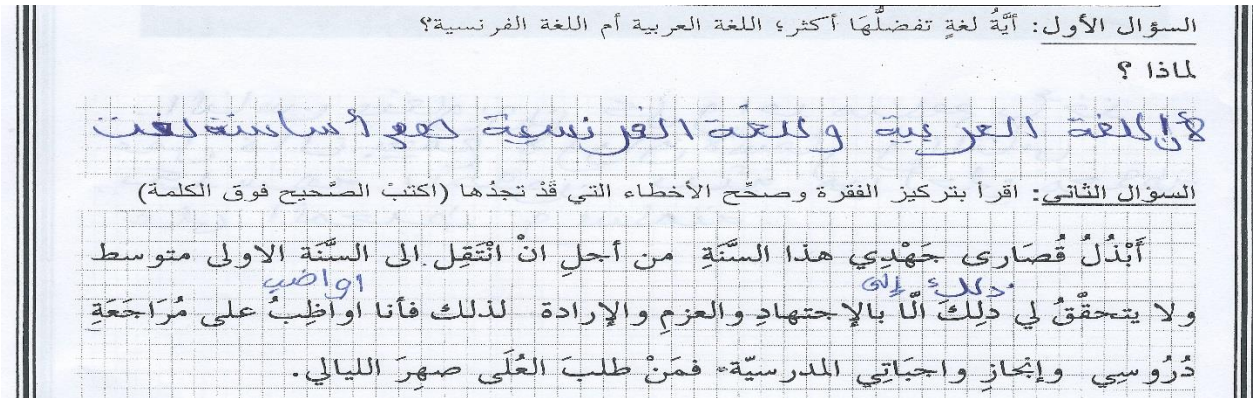 السؤال الأول: أيَّةُ لغةٍ تفضلُهَا أكثر؛ اللغة العربية أم اللغة الفرنسية؟
لماذا ؟
لأن اللغة العربية وللغة الفرنسية هو أساسة لغت
السؤال الثاني: اقرأ بتركيز الفقرة وصحِّح الأخطاء التي قَدْ تجدُها (اكتبْ الصَّحيح فوق الكلمة)
أَبْذُلُ قُصَارى جَهْدِي هذا السَّنَةِ من أجلِ انْ انْتَقِل الى السَّنَة الاولى متوسط
ذلك إلى اواضب
ولا يتحقْقُ لي دَلِكَ الّا بالإجتهادِ والعزمِ والإرادة لذلك فأنا اواظِبُ على مُرَاجَعَةِ
دُرُوسِي وإنجازِ واجبَاتِي المدرسيّة. فمَنْ طلبَ العُلَى صهِرَ الليالي.